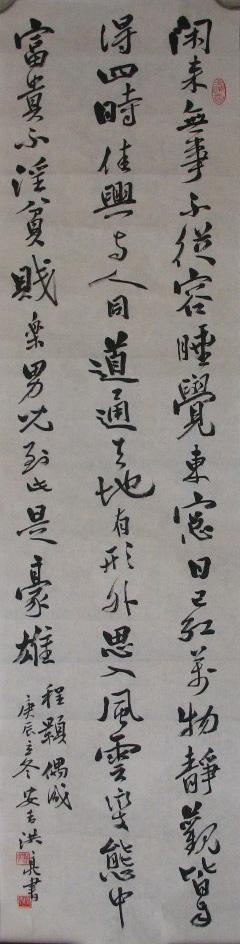 閑來無事不從容睡覺東窗日已紅萬物靜觀皆自
得四時佳興與人同道通天地有形外思入風雲變態中
富貴不淫貧賤樂男兒到此是豪雄
程顥偶成
庚辰立冬安吉洪泉書